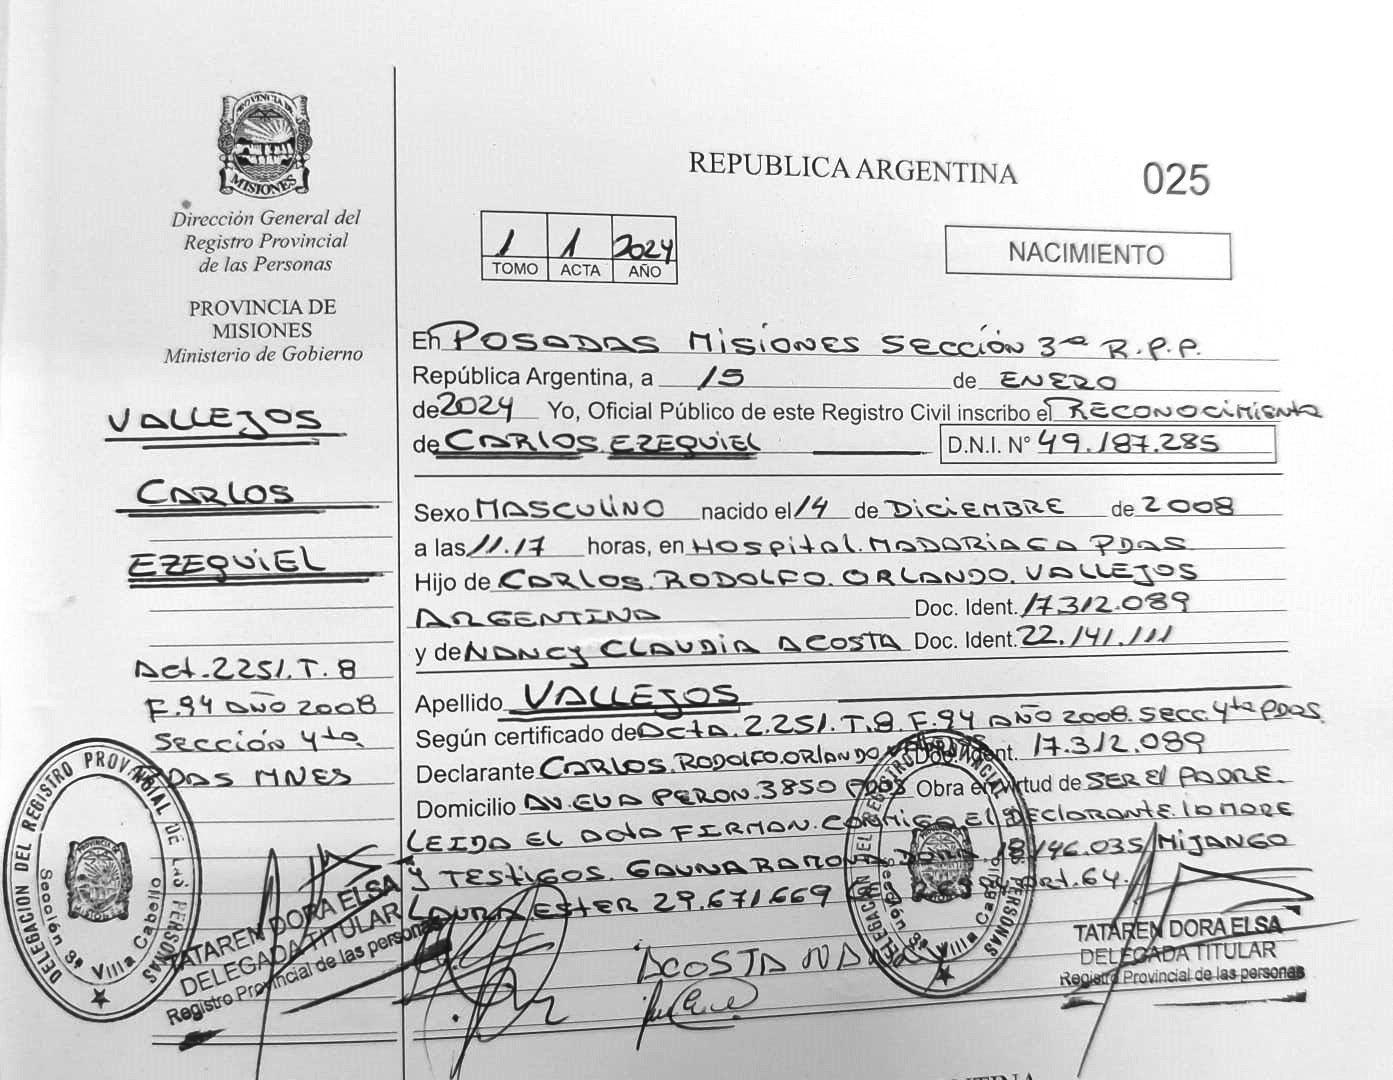 PROVINCIA DE
MISIONES
Dirección General del
Registro Provincial
de las Personas
PROVINCIA DE
MISIONES
Ministerio de Gobierno
VALLEJOS
CARLOS
EZEQUIEL
Act.2251.T.8
F.94 AÑO 2008
Sección 4ta
PDAS MNES
REPUBLICA ARGENTINA
025
1 1 2024
TOMO ACTA AÑO
NACIMIENTO
En POSADAS MISIONES SECCIÓN 3ra R.P.P.
República Argentina, a 15 de ENERO
de 2024 Yo, Oficial Público de este Registro Civil inscribo el RECONOCIMIENTO
de CARLOS EZEQUIEL D.N.I. N° 49.187.285
Sexo MASCULINO nacido el 14 de DICIEMBRE de 2008
a las 11.17 horas, en HOSPITAL MADARIAGA PDAS
Hijo de CARLOS.RODOLFO.ORLANDO.VALLEJOS
ARGENTINA Doc. Ident. 17.312.089
y de NANCY CLAUDIA ACOSTA Doc. Ident. 22.141.111
Apellido VALLEJOS
Según certificado de Acta.2.251.T.8.F.94 AÑO 2008.SECC.4ta PDAS.
Declarante CARLOS.RODOLFO.ORLANDO VALLEJOS Doc. Ident. 17.312.089
Domicilio AV.EVA PERON.3850 PDAS Obra en virtud de SER El PADRE.
LEIDA EL ACTA FIRMAN.CONMIGO El DECLARANTE.lA MADRE
Y TESTIGOS. GAUNA RAMONA 18.146.035 MIJANGO
LAURA ESTER 29.671.669 ART.64.
ACOSTA
DELEGACION DEL REGISTRO PROVINCIAL DE LAS PERSONAS
Sección 3ª Villa Cabello
TATAREN DORA ELSA
DELEGADA TITULAR
Registro Provincial de las personas
DELEGACION DEL REGISTRO PROVINCIAL DE LAS PERSONAS
Sección 3ª Villa Cabello
TATAREN DORA ELSA
DELEGADA TITULAR
Registro Provincial de las personas